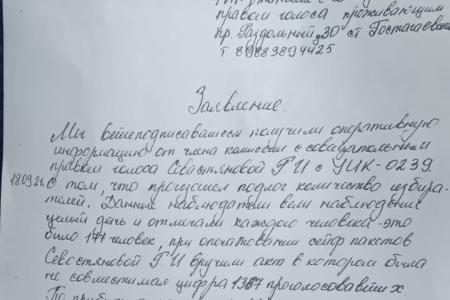 правом голоса проживающим
пр. Раздольный д30 ст Гостагаевская
т 89883894425
Заявление.
Мы вышеподписавшиеся получили оперативную
информацию от члена комиссии с совещательным
правом голоса Севастяновой Г И с УИК-0239.
18.09.21г. О том, что произошел подлог количество избира-
телей. Данные наблюдатели вели наблюдение
целый день и отмечали каждого человека - это
было 177 человек, при опечатовании сейф пакетов
Севостяновой Г И вручили акт в котором была
не совместимая цифра 1387 проголосовавших